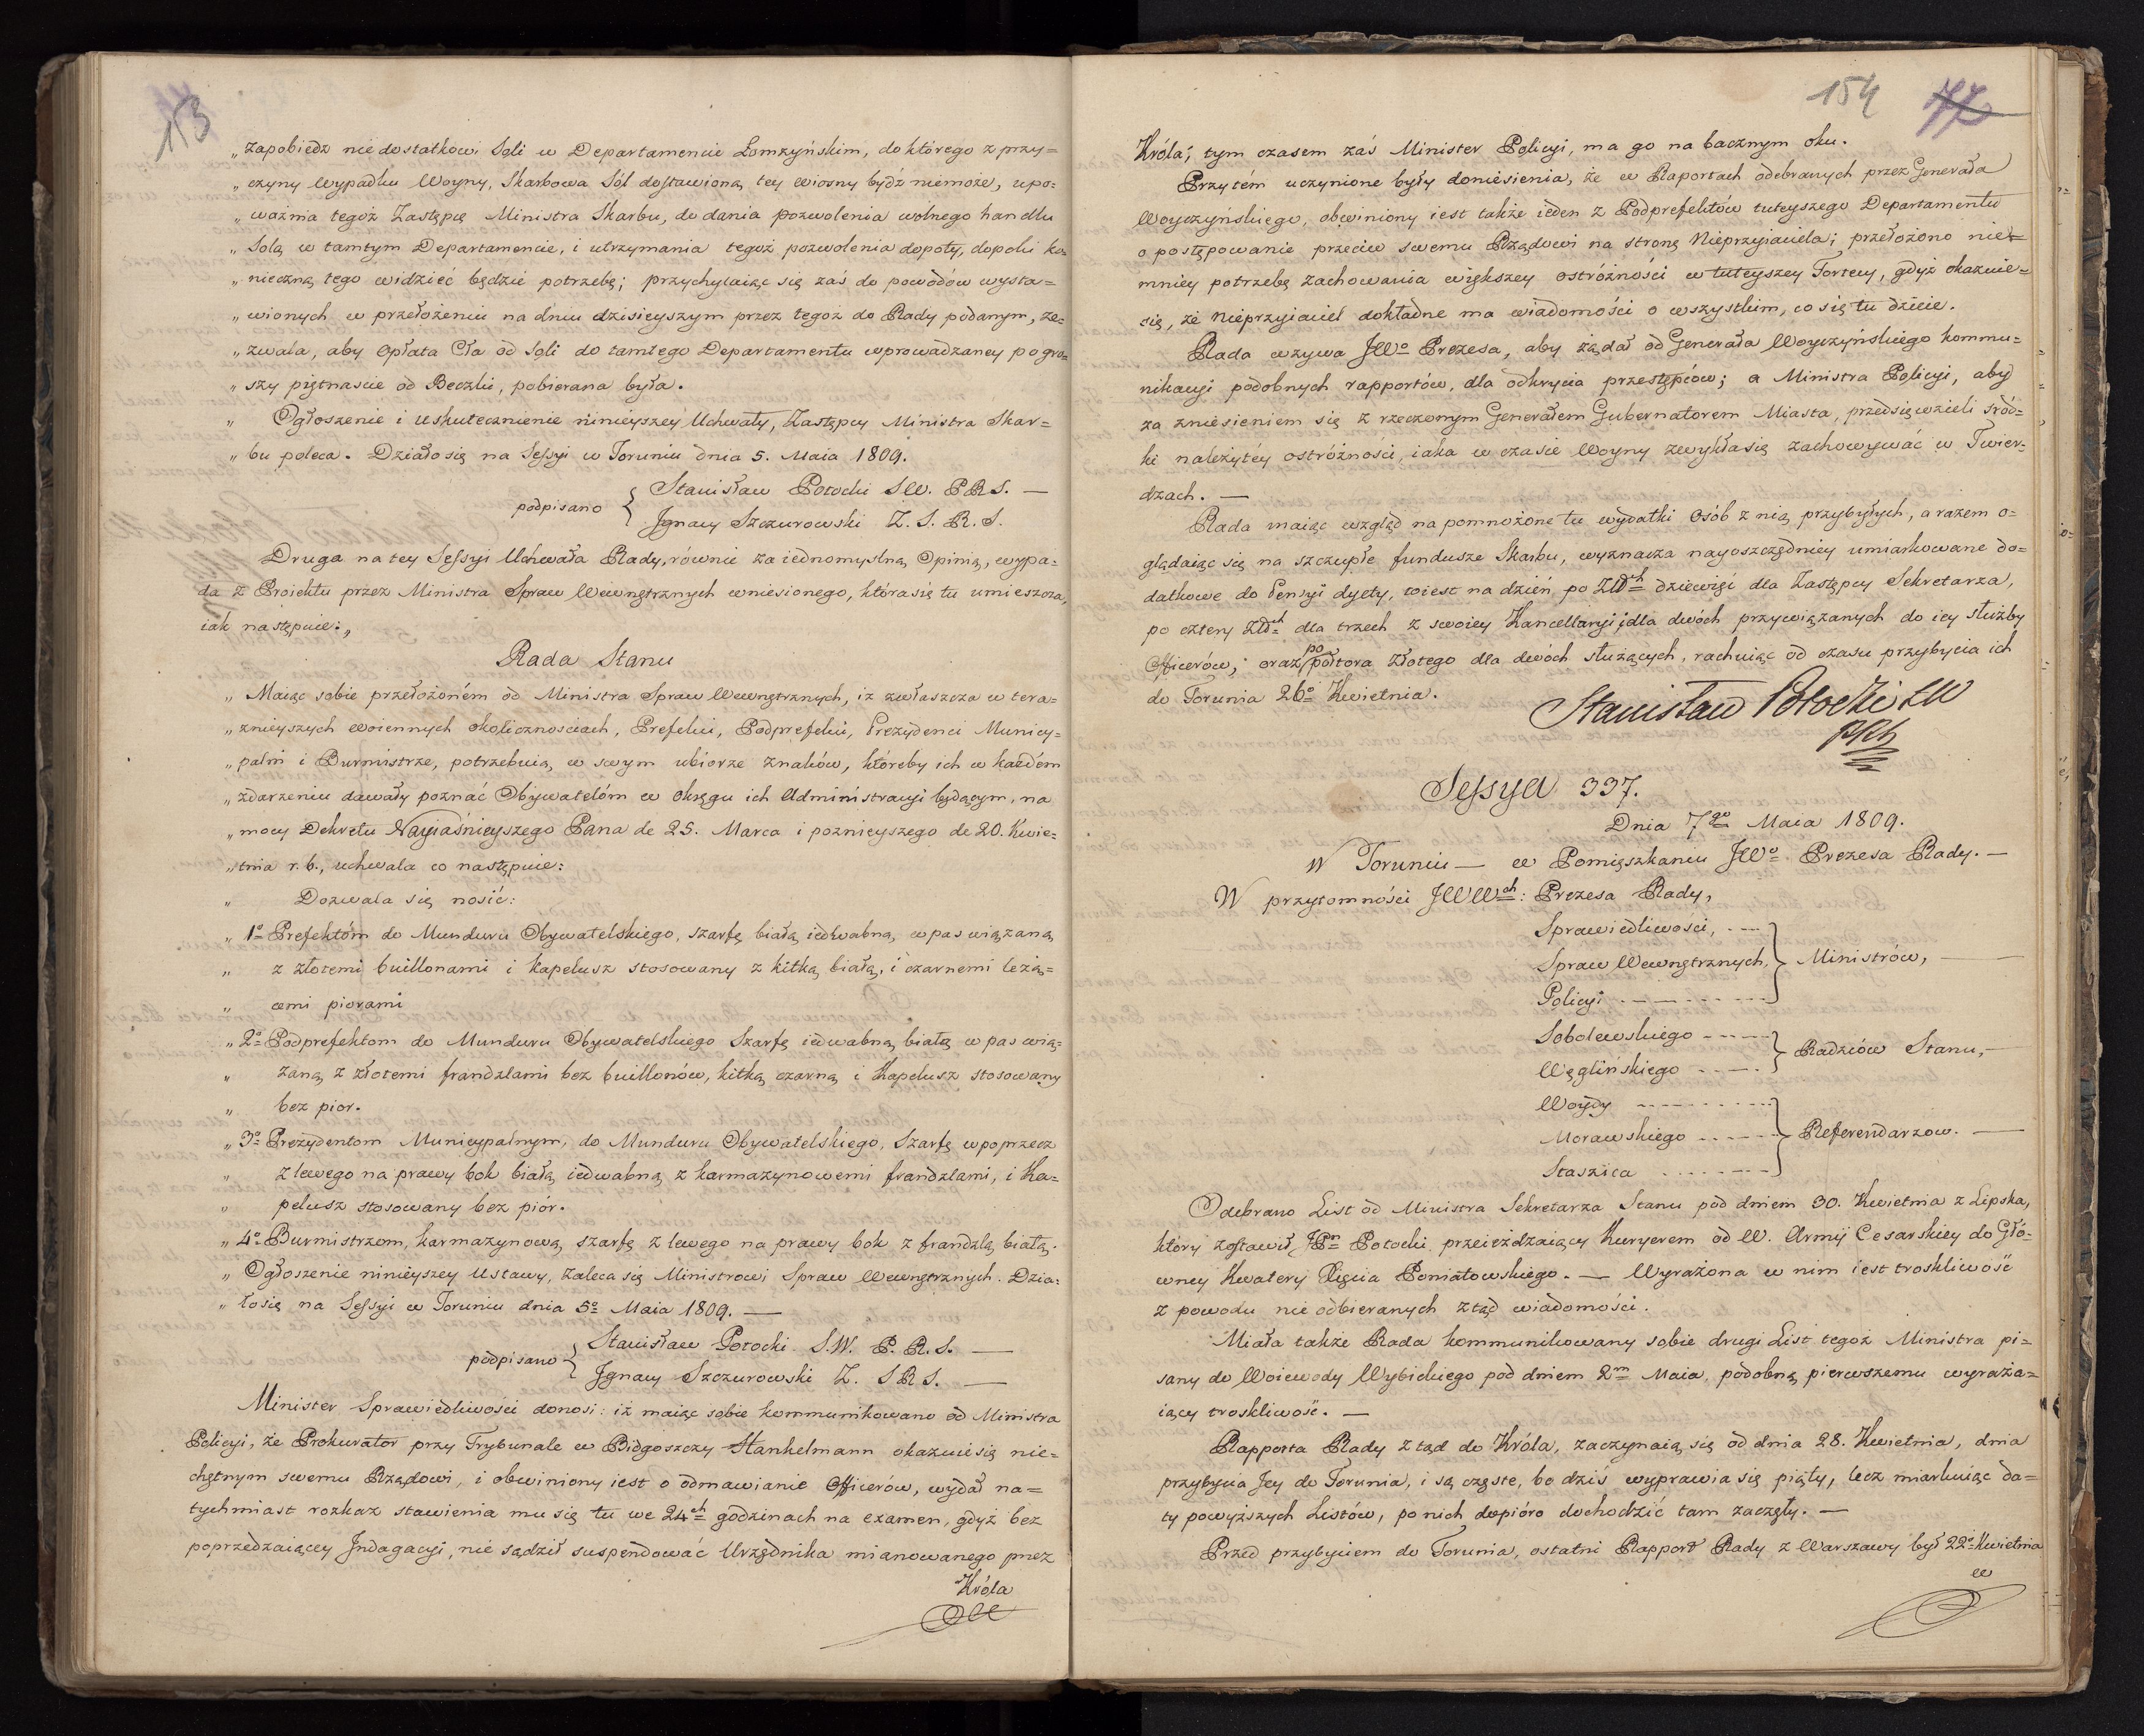 153
„ zapobiedz niedostatkowi Soli w Departamencie Łomzyńskim, do którego z przy=
„ czyny wypadku Woyny, Skarbowa Sól dostawioną tey wiosny bydź niemoże, upo=
„ ważnia tegoż Zastępcę Ministra Skarbu, do dania pozwolenia wolnego handlu
„ Solą w tamtym Departamencie, i utrzymania tegoż pozwolenia dopoty, dopoki ko=
„ nieczną tego widzieć będzie potrzebę; przychylaiąc się zaś do powodów wysta=
„ wionych w przełożeniu na dniu dzisieyszym przez tegoż do Rady podanym, ze=
„ zwala, aby Opłata Cła od Soli do tamtego Departamentu wprowadzaney po gro=
„ szy piętnaście od Beczki, pobierana była.
„ Ogłoszenie i uskutecznienie ninieyszey Uchwały, Zastępcy Ministra Skar=
„ bu poleca. Działo się na Sessyi w Toruniu dnia 5. Maia 1809.
podpisano { Stanisław Potocki S.W. P.R.S. —
Ignacy Szczurowski Z. S. R. S.
Druga na tey Sessyi Uchwała Rady, równie za iednomyslną Opinią, wypa=
da z Proiektu przez Ministra Spraw Wewnętrznych wniesionego, która się tu umieszcza,
iak następuie: „
Rada Stanu
„ Maiąc sobie przełożoném od Ministra Spraw Wewnętrznych, iz zwłaszcza w tera=
„ znieyszych woiennych okolicznościach, Prefekci, Podprefekci, Prezydenci Municy=
„ palni i Burmistrze, potrzebuią w swym ubiorze znaków, któreby ich w każdém
„ zdarzeniu dawały poznać Obywatelóm w Okręgu ich Administracyi będącym, na
„ mocy Dekretu Nayiaśnieyszego Pana de 25. Marca i poznieyszego de 20. Kwie=
„ tnia r. b., uchwala co następuie:
„ Dozwala się nosić:
„ 1º Prefektóm do Munduru Obywatelskiego, szarfę białą iedwabną, w pas wiązaną
„ z złotemi buillonami i kapelusz stosowany z kitką białą, i czarnemi leżą=
„ cemi piorami
„ 2º Podprefektom do Munduru Obywatelskiego Szarfę iedwabną białą w pas wią=
„ zaną z złotemi frandzlami bez buillonów, kitką czarną i Kapelusz stosowany
„ bez pior.
„ 3º Prezydentom Municypalnym, do Munduru Obywatelskiego, Szarfę w poprzecz
„ z lewego na prawy bok białą iedwabną z karmazynowemi frandzlami, i Ka=
„ pelusz stosowany bez piór.
„ 4º Burmistrzom, karmazynową szarfę z lewego na prawy bok z frandzlą białą.
„ Ogłoszenie ninieyszey Ustawy, zaleca się Ministrowi Spraw Wewnętrznych. Dzia=
„ ło się na Sessyi w Toruniu dnia 5º Maia 1809. —
podpisano { Stanisław Potocki S.W. P. R. S. —
Ignacy Szczurowski Z. S R S. —
Minister Sprawiedliwości donosi: iż maiąc sobie kommunikowano od Ministra
Policyi, że Prokurator przy Trybunale w Bidgoszczy Hankelmann okazuie się nie=
chętnym swemu Rządowi, i obwiniony iest o odmawianie Officerów, wydał na=
tychmiast rozkaz stawienia mu się tu we 24ch godzinach na examen, gdyż bez
poprzedzaiącey Indagacyi, nie sądził suspendować Urzędnika mianowanego przez
Króla
154 77
Króla; tym czasem zaś Minister Policyi, ma go na bacznym oku.
Przytém uczynione były doniesienia, że w Raportach odebranych przez Generała
Woyczyńskiego, obwiniony iest także ieden z Podprefektów tuteyszego Departamentu
o postępowanie przeciw swemu Rządowi na stronę Nieprzyiaciela; przełożono nie=
mniey potrzebę zachowania większey ostróżności w tuteyszey Fortecy, gdyż okazuie=
się, że Nieprzyiaciel dokładne ma wiadomości o wszystkim, co się tu dzieie.
Rada wzywa JWº Prezesa, aby żądał od Generała Woyczyńskiego kommu=
nikacyi podobnych rapportów, dla odkrycia przestępców; a Ministra Policyi, aby
za zniesieniem się z rzeczonym Generałem Gubernatorem Miasta, przedsięwzieli śród=
ki należytéy ostróżności, iaka w czasie Woyny zwykła się zachowywać w Twier=
dzach. —
Rada maiąc wzgląd na pomnożone tu wydatki Osób z nią przybyłych, a razem o=
glądaiąc się na szczupłe fundusze Skarbu, wyznacza nayoszczędniey umiarkowane do=
datkowe do Pensyi dyety, to iest na dzień, po Złłch dziewięć dla Zastępcy Sekretarza,
po cztery Złłch dla trzech z swoiey Kancellaryi, i dla dwóch przywiązanych do iey służby
Officerów; oraz po półtora złotego dla dwóch służących, rachuiąc od czasu przybycia ich
do Torunia 26º Kwietnia.
Stanisław Potocki SW
PRS
Sessya 337.
Dnia 7go Maia 1809.
W Toruniu — w Pomięszkaniu JWº Prezesa Rady. —
W przytomności JWWch: Prezesa Rady,
Sprawiedliwości,
Spraw Wewnętrznych, } Ministrów, —
Policyi
Sobolewskiego
Węglińskiego } Radzców Stanu, —
Woydy
Morawskiego } Referendarzow. —
Staszica
Odebrano List od Ministra Sekretarza Stanu pod dniem 30. Kwietnia z Lipska,
który zostawił JPn Potocki przeieżdzaiący Kuryerem od W. Armij Cesarskiey do Głó=
wney Kwatery Xięcia Poniatowskiego. — Wyrażona w nim iest troskliwość
z powodu nie odbieranych ztąd wiadomości.
Miała także Rada kommunikowany sobie drugi List tegoż Ministra pi=
sany do Woiewody Wybickiego pod dniem 2m Maia, podobną pierwszemu wyraża=
iący troskliwość. —
Rapporta Rady ztąd do Króla, zaczynaią się od dnia 28. Kwietnia, dnia
przybycia Jey do Torunia, i są częste, bo dziś wyprawia się piąty, lecz miarkuiąc da=
ty powyższych Listów, po nich dopióro dochodzić tam zaczęły. —
Przed przybyciem do Torunia, ostatni Rapport Rady z Warszawy był 22º Kwietnia
w